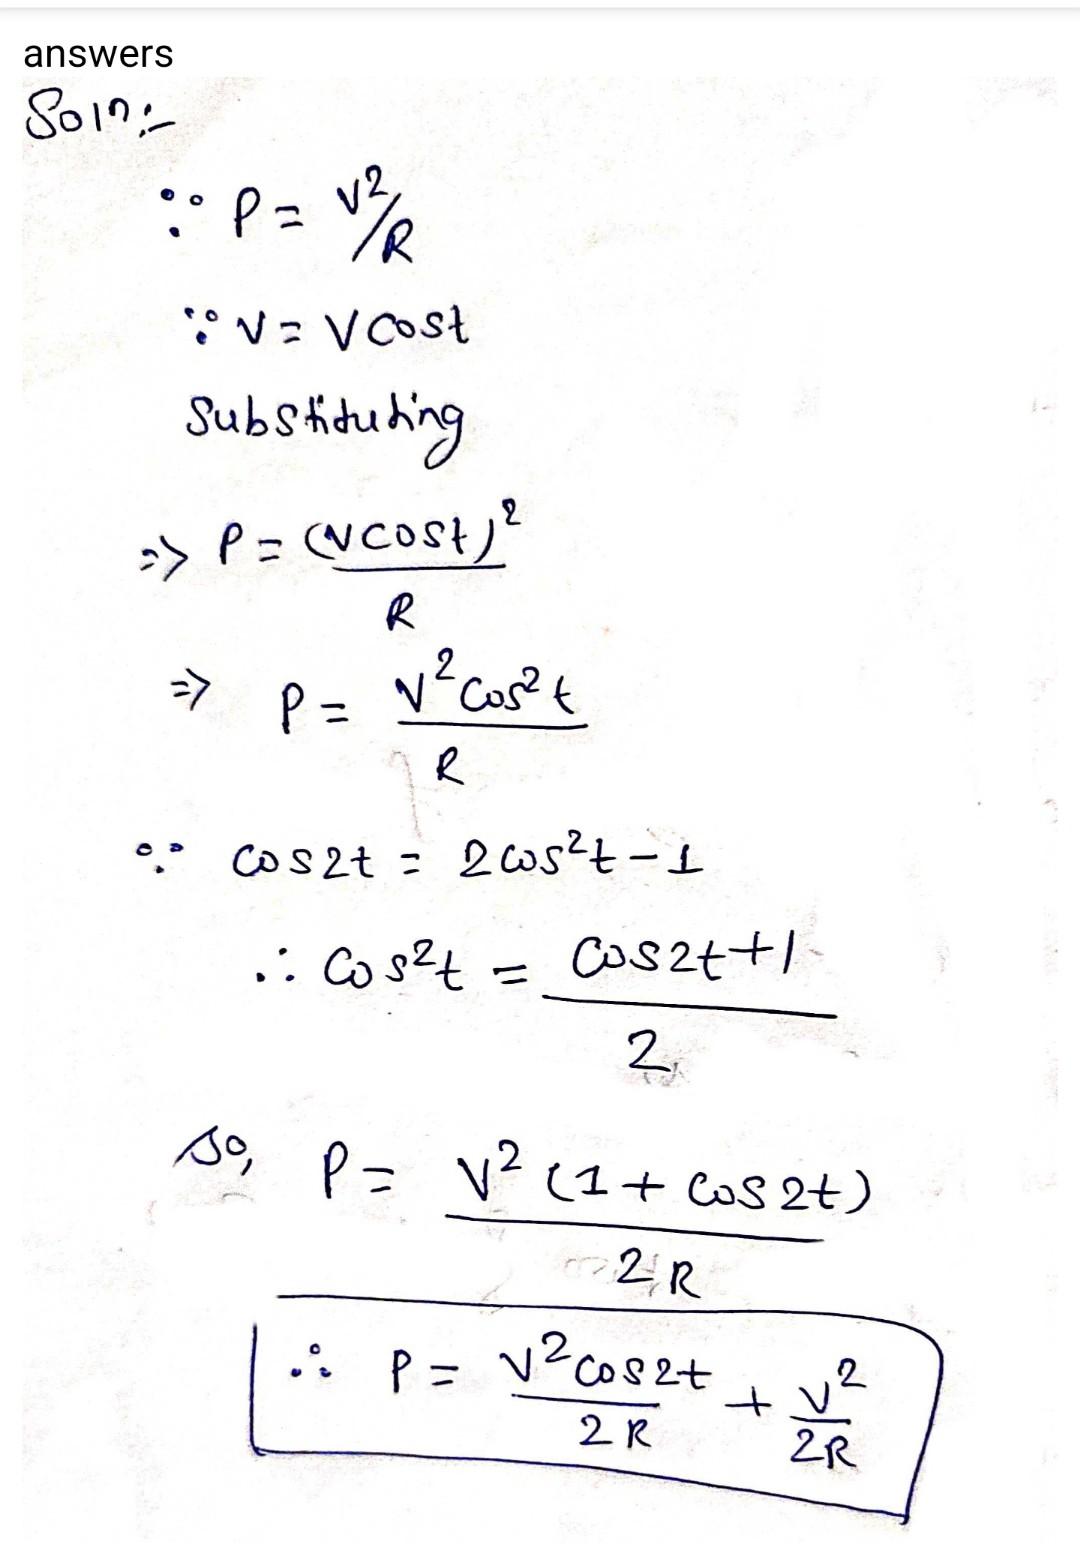 answers
Soln:-
∵ P = V²/R
∵ V = V cost
Substituting
=> P = (V cost)²
R
=> P = V² cos²t
R
∵ cos2t = 2cos²t - 1
∴ cos²t = cos2t+1
2
so, P = V² (1 + cos2t)
2R
∴ P = V² cos2t + V²
2R 2R